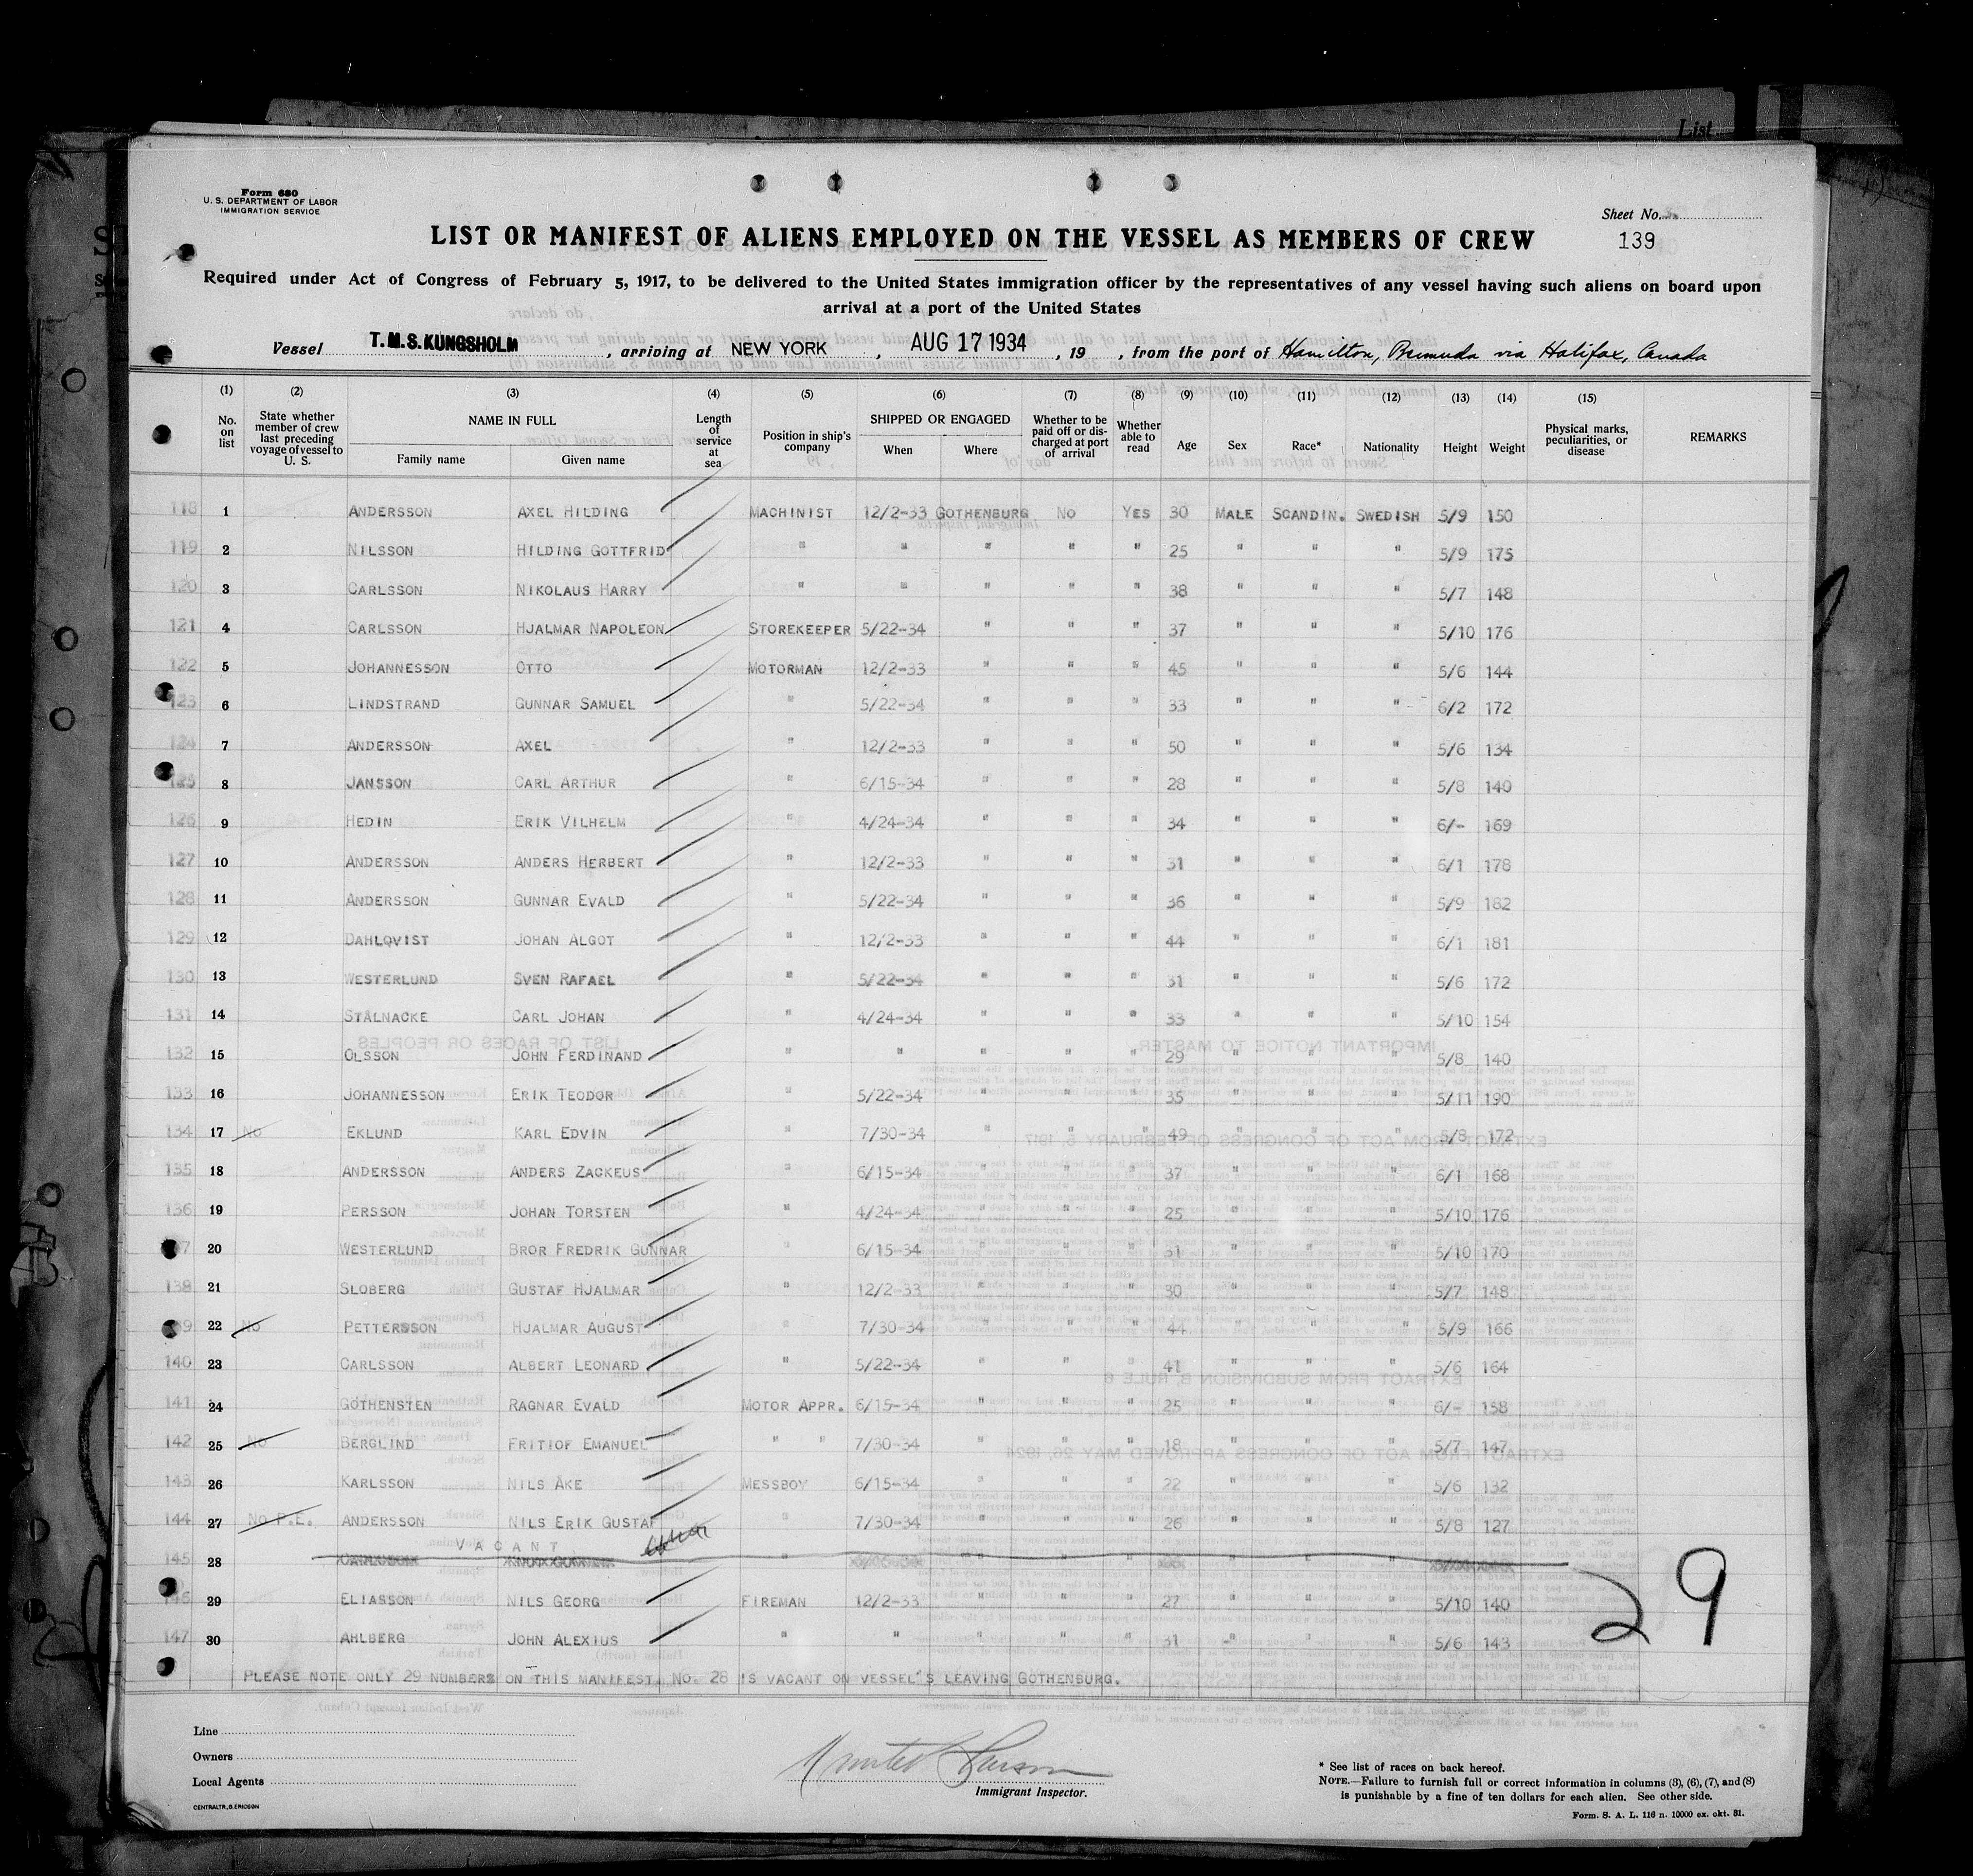 List
Form 680
U. S. DEPARTMENT OF LABOR
IMMIGRATION SERVICE
Sheet No.
139
LIST OR MANIFEST OF ALIENS EMPLOYED ON THE VESSEL AS MEMBERS OF CREW
Required under Act of Congress of February 5, 1917, to be delivered to the United States immigration officer by the representatives of any vessel having such aliens on board upon
arrival at a port of the United States
Vessel T.M.S. KUNGSHOLM, arriving at NEW YORK, AUG 17 1934, 19 , from the port of Hamilton, Bermuda via Halifax, Canada
(1) (2) (3) (4) (5) (6) (7) (8) (9) (10) (11) (12) (13) (14) (15)
No. on list | State whether member of crew last preceding voyage of vessel to U. S. | NAME IN FULL Family name Given name | Length of service at sea | Position in ship's company | SHIPPED OR ENGAGED When Where | Whether to be paid off or discharged at port of arrival | Whether able to read | Age | Sex | Race* | Nationality | Height | Weight | Physical marks, peculiarities, or disease | REMARKS
118 1 ANDERSSON AXEL HILDING MACHINIST 12/2-33 GOTHENBURG NO YES 30 MALE SCANDIN. SWEDISH 5/9 150
119 2 NILSSON HILDING GOTTFRID " " " " " 25 " " " 5/9 175
120 3 CARLSSON NIKOLAUS HARRY " " " " " 38 " " " 5/7 148
121 4 CARLSSON HJALMAR NAPOLEON STOREKEEPER 5/22-34 " " " 37 " " " 5/10 176
122 5 JOHANNESSON OTTO MOTORMAN 12/2-33 " " " 45 " " " 5/6 144
123 6 LINDSTRAND GUNNAR SAMUEL " 5/22-34 " " " 33 " " " 6/2 172
124 7 ANDERSSON AXEL " 12/2-33 " " " 50 " " " 5/6 134
125 8 JANSSON CARL ARTHUR " 6/15-34 " " " 28 " " " 5/8 140
126 9 HEDIN ERIK VILHELM " 4/24-34 " " " 34 " " " 6/- 169
127 10 ANDERSSON ANDERS HERBERT " 12/2-33 " " " 31 " " " 6/1 178
128 11 ANDERSSON GUNNAR EVALD " 5/22-34 " " " 36 " " " 5/9 182
129 12 DAHLQVIST JOHAN ALGOT " 12/2-33 " " " 44 " " " 6/1 181
130 13 WESTERLUND SVEN RAFAEL " 5/22-34 " " " 31 " " " 5/6 172
131 14 STÅLNACKE CARL JOHAN " 4/24-34 " " " 33 " " " 5/10 154
132 15 OLSSON JOHN FERDINAND " " " " " 29 " " " 5/8 140
133 16 JOHANNESSON ERIK TEODOR " 5/22-34 " " " 35 " " " 5/11 190
134 17 NO EKLUND KARL EDVIN " 7/30-34 " " " 49 " " " 5/8 172
135 18 ANDERSSON ANDERS ZACKEUS " 6/15-34 " " " 37 " " " 6/1 168
136 19 PERSSON JOHAN TORSTEN " 4/24-34 " " " 25 " " " 5/10 176
20 WESTERLUND BROR FREDRIK GUNNAR " 6/15-34 " " " 31 " " " 5/10 170
138 21 SLOBERG GUSTAF HJALMAR " 12/2-33 " " " 30 " " " 5/7 148
22 NO PETTERSSON HJALMAR AUGUST " 7/30-34 " " " 44 " " " 5/9 166
140 23 CARLSSON ALBERT LEONARD " 5/22-34 " " " 41 " " " 5/6 164
141 24 GÖTHENSTEN RAGNAR EVALD MOTOR APPR. 6/15-34 " " " 25 " " " 6/- 158
142 25 NO BERGLIND FRITIOF EMANUEL " " 7/30-34 " " " 18 " " " 5/7 147
143 26 KARLSSON NILS ÅKE MESSBOY 6/15-34 " " " 22 " " " 5/6 132
144 27 NO P.E. ANDERSSON NILS ERIK GUSTAF " 7/30-34 " " " 26 " " " 5/8 127
145 28 VACANT
146 29 ELIASSON NILS GEORG FIREMAN 12/2-33 " " " 27 " " " 5/10 140
147 30 AHLBERG JOHN ALEXIUS " " " " " 31 " " " 5/6 143
29
PLEASE NOTE ONLY 29 NUMBERS ON THIS MANIFEST, NO. 28 IS VACANT ON VESSEL'S LEAVING GOTHENBURG.
Line
Owners
Local Agents
CENTRALTR., G. ERICSON
Immigrant Inspector.
* See list of races on back hereof.
NOTE.—Failure to furnish full or correct information in columns (3), (6), (7), and (8)
is punishable by a fine of ten dollars for each alien. See other side.
Form. S. A. L. 116 n. 10000 ex. okt. 31.